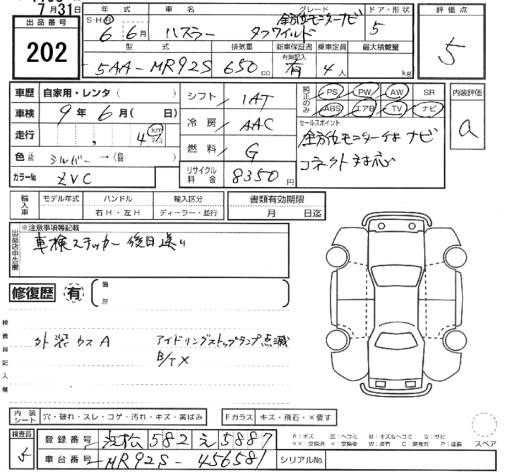 7月31日
出品番号 202
年式 車名 グレード ドア・形状 評価点
S・H・R 6年 6月 ハスラー タフワイルド 全方位モニターナビ 5 5
型式 排気量 新車保証書 乗車定員 最大積載量
有無記入
5AA-MR92S 650cc 有 4人 kg
車歴 自家用・レンタ( ) シフト 1AT 純正のみ PS PW AW SR 内装評価
車検 9年6月( 日) 冷房 AAC ABS エアB TV ナビ a
走行 4 km マイル 燃料 G セールスポイント
色 シルバー →( 色) リサイクル料金 8350円 全方位モニター付ナビ
カラーNo. ZVC コネクト対応
輸入車 モデル年式 ハンドル 輸入区分 書類有効期限
右H・左H ディーラー・並行 月 日迄
出品店申告欄 ※注意事項等記載
車検ステッカー後日送り
修復歴 有 箇所
検査員記入欄
外装カスA アイドリングストップランプ点滅
B/TX
内装シート 穴・破れ・スレ・コゲ・汚れ・キズ・黄ばみ Fガラス キズ・飛石・X要す
検査員 登録番号 浜松 582 え 5887
A:キズ U:ヘコミ B:キズ&ヘコミ S:サビ
スペア
車台番号 MR92S-456581 シリアルNo.